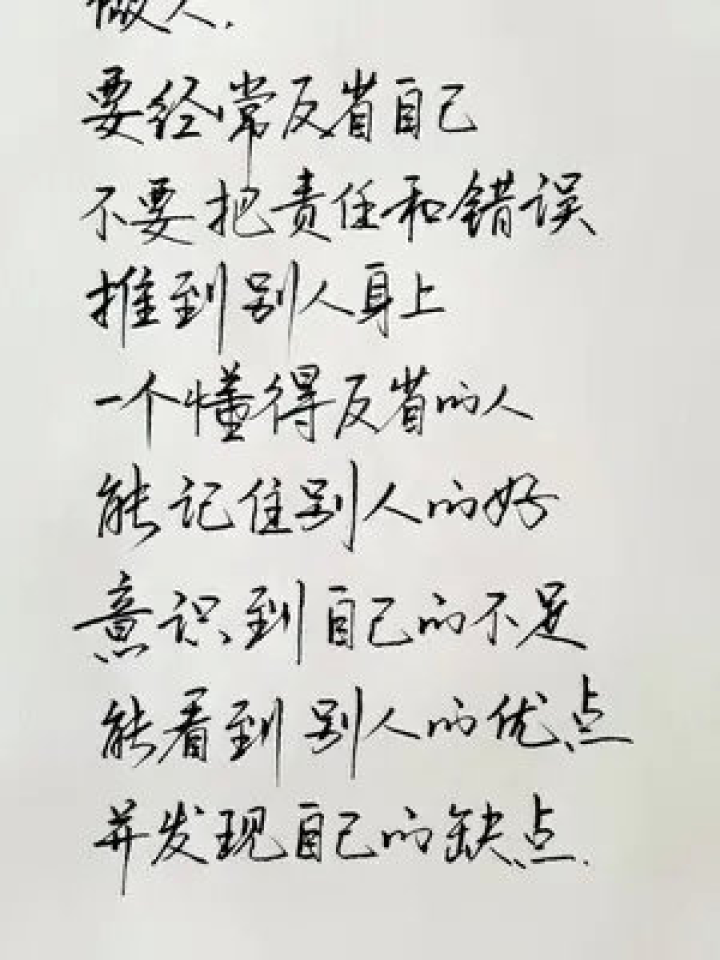 做人.
要经常反省自己
不要把责任和错误
推到别人身上
一个懂得反省的人
能记住别人的好
意识到自己的不足
能看到别人的优点
并发现自己的缺点.